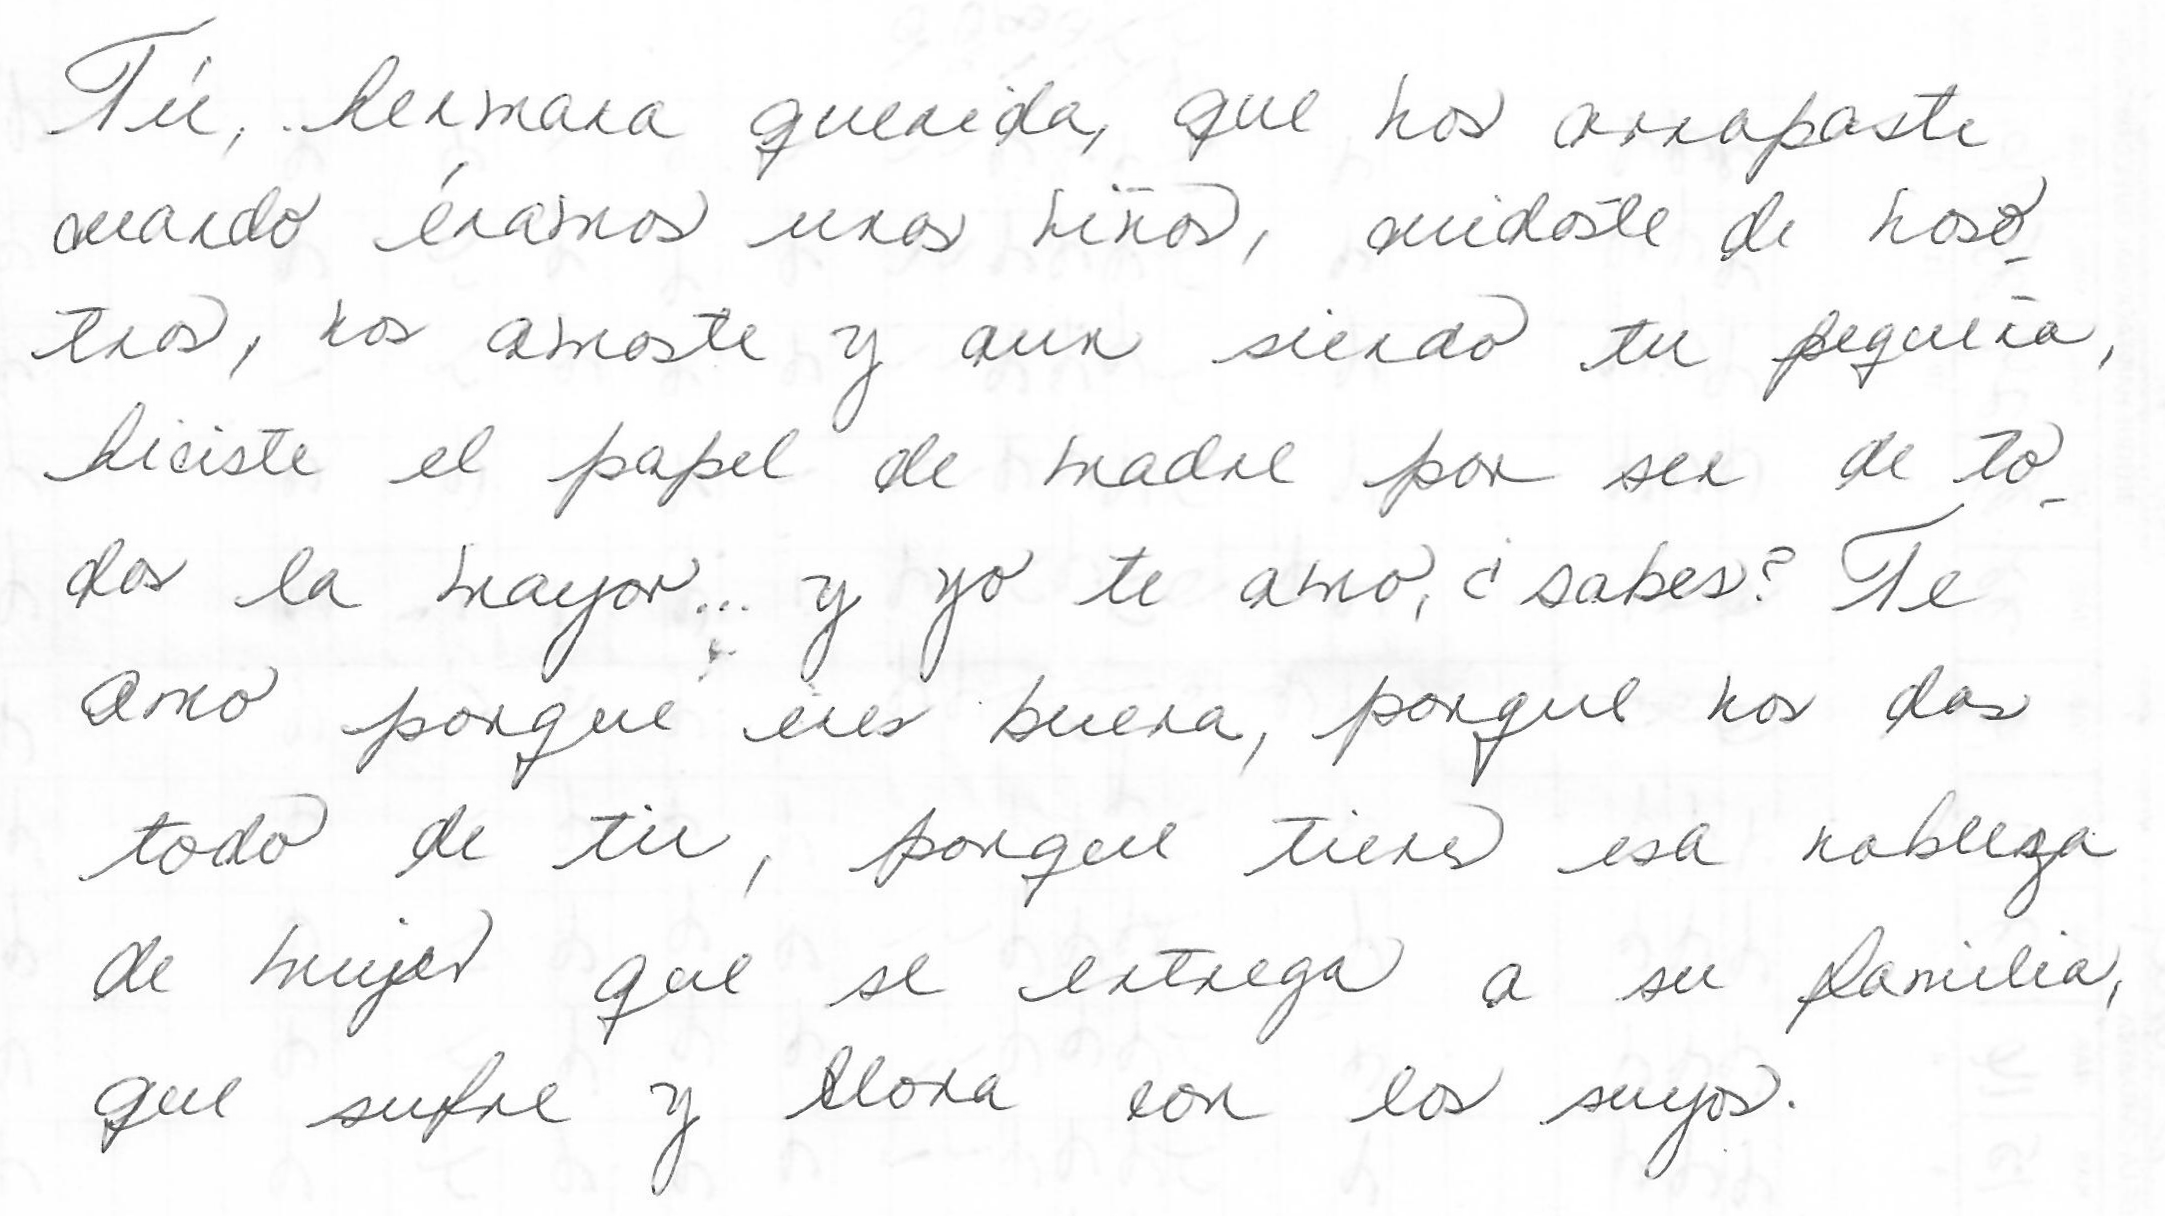 Tú, hermana querida, que nos arropaste
cuando éramos unos niños, cuidaste de noso-
tros, nos amaste y aun siendo tu pequeña,
hiciste el papel de madre por ser de to-
dos la mayor... y yo te amo, ¿sabes? Te
amo porque eres buena, porque nos das
todo de tu, porque tienes esa nobleza
de mujer que se entrega a su familia,
que sufre y llora con los suyos.